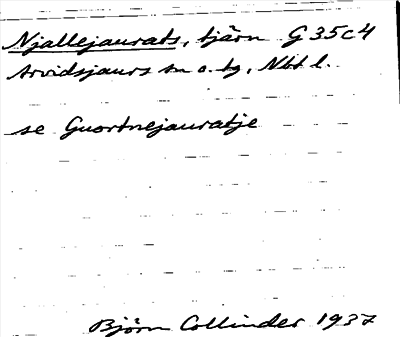 Njallejaurats, tjärn G 35c4
Arvidsjaurs sn o. tg, Nbt l.
se Guortnejauratje
Björn Collinder 1937